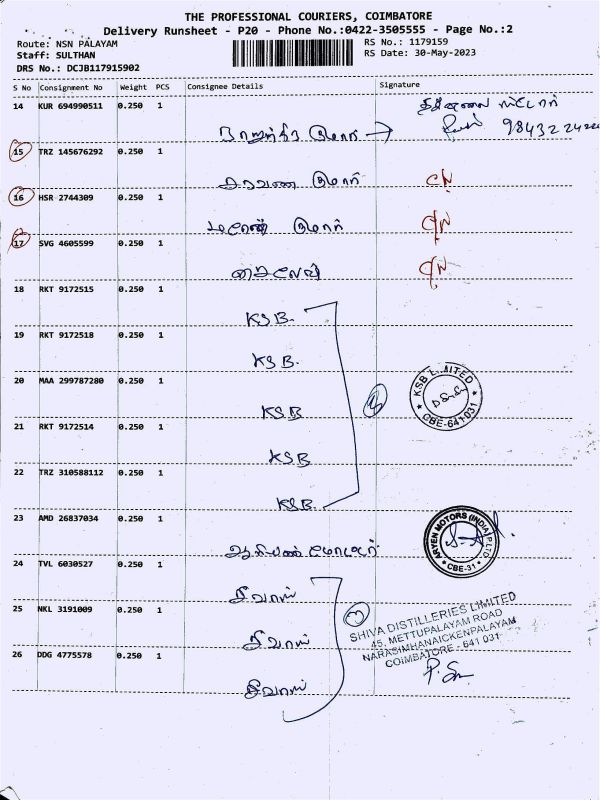 THE PROFESSIONAL COURIERS, COIMBATORE
Delivery Runsheet - P20 - Phone No.:0422-3505555 - Page No.:2
Route: NSN PALAYAM
RS No.: 1179159
Staff: SULTHAN
RS Date: 30-May-2023
DRS No.: DCJB117915902
S No Consignment No Weight PCS Consignee Details Signature
14 KUR 694990511 0.250 1
15 TRZ 145676292 0.250 1
சரவண குமார்
16 HSR 2744309 0.250 1
குமார்
17 SVG 4605599 0.250 1
18 RKT 9172515 0.250 1
KSB.
19 RKT 9172518 0.250 1
KSB.
20 MAA 299787280 0.250 1
KSB LIMITED
CBE-641031
KSB
21 RKT 9172514 0.250 1
KSB
22 TRZ 310588112 0.250 1
KSB.
23 AMD 26837034 0.250 1
ARYEN MOTORS (INDIA) P LTD
CBE-31
24 TVL 6030527 0.250 1
25 NKL 3191009 0.250 1
3
SHIVA DISTILLERIES LIMITED
45, METTUPALAYAM ROAD
NARASIMHANAICKENPALAYAM
COIMBATORE - 641 031
26 DDG 4775578 0.250 1